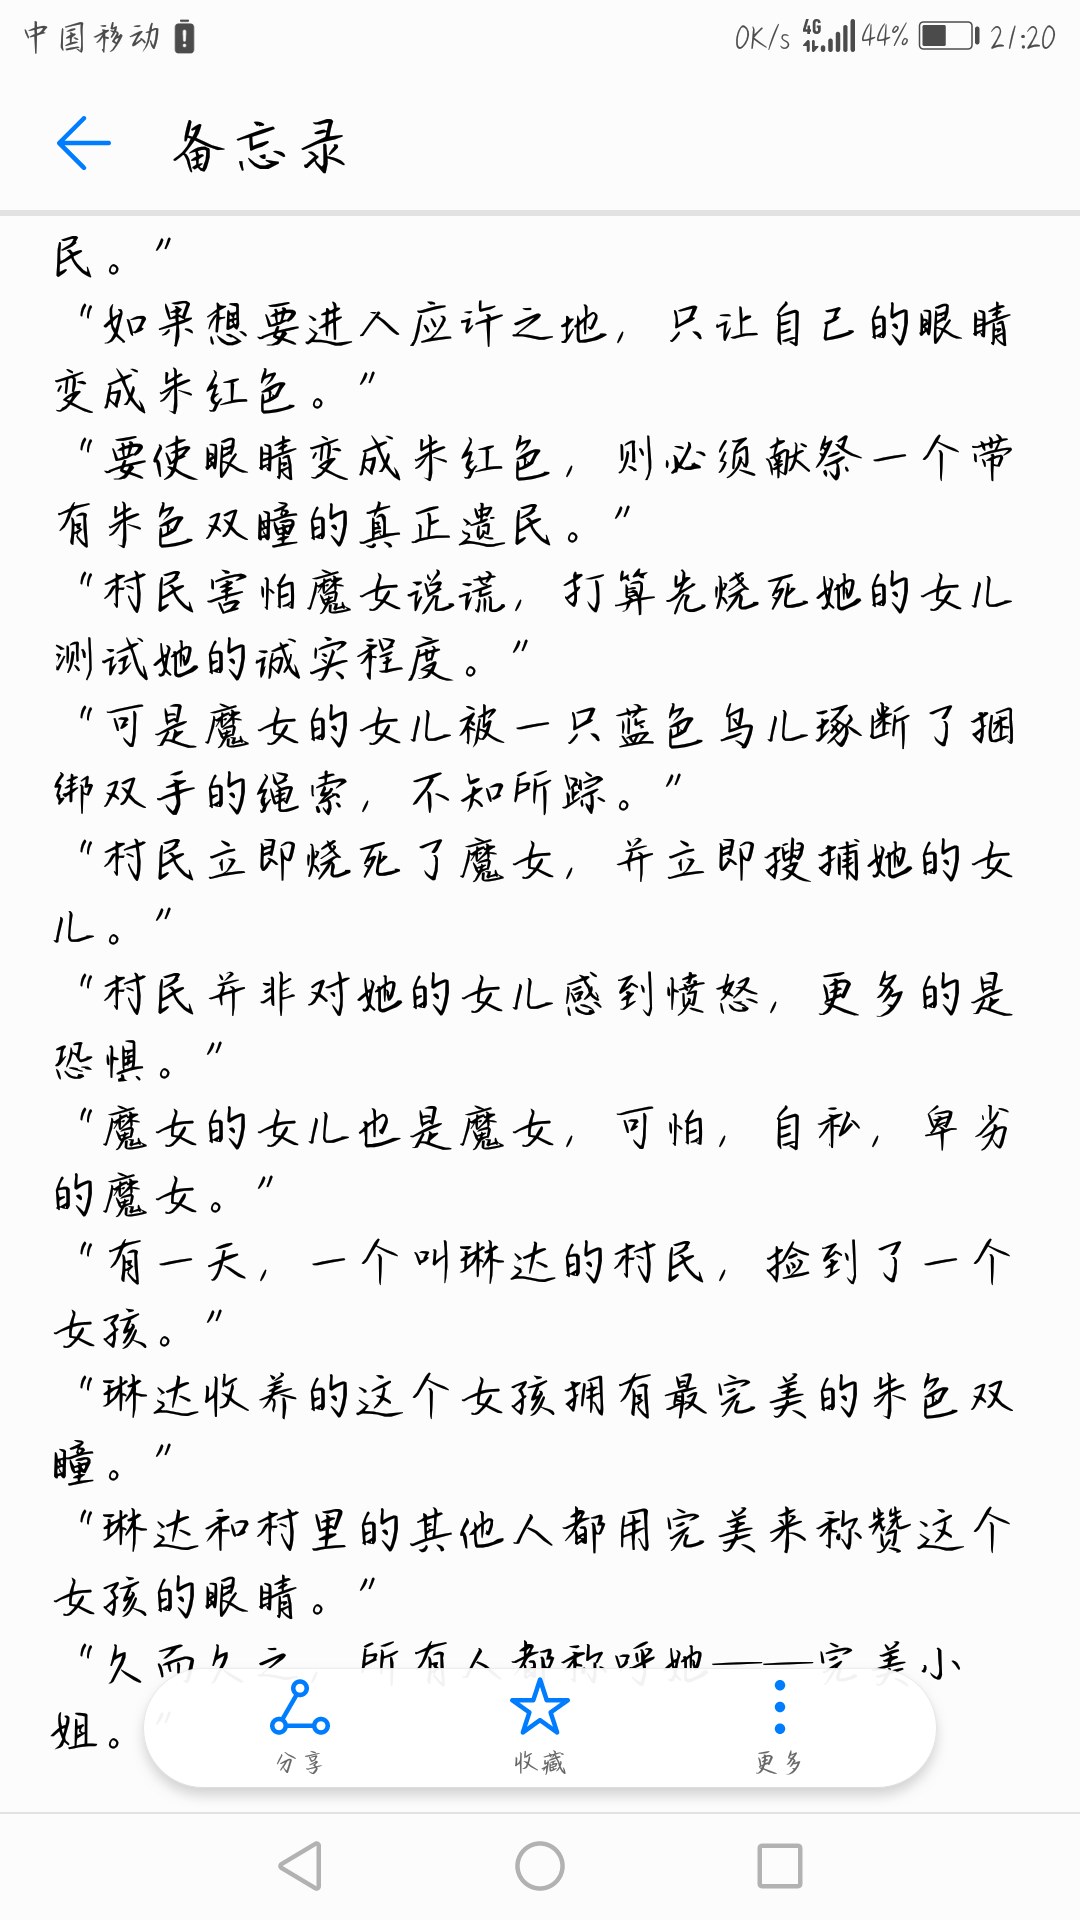 中国移动 0K/s 4G 44% 21:20
备忘录
民。”
“如果想要进入应许之地，只让自己的眼睛
变成朱红色。”
“要使眼睛变成朱红色，则必须献祭一个带
有朱色双瞳的真正遗民。”
“村民害怕魔女说谎，打算先烧死她的女儿
测试她的诚实程度。”
“可是魔女的女儿被一只蓝色鸟儿琢断了捆
绑双手的绳索，不知所踪。”
“村民立即烧死了魔女，并立即搜捕她的女
儿。”
“村民并非对她的女儿感到愤怒，更多的是
恐惧。”
“魔女的女儿也是魔女，可怕，自私，卑劣
的魔女。”
“有一天，一个叫琳达的村民，捡到了一个
女孩。”
“琳达收养的这个女孩拥有最完美的朱色双
瞳。”
“琳达和村里的其他人都用完美来称赞这个
女孩的眼睛。”
“久而久之，所有人都称呼她——完美小
姐。”
分享 收藏 更多